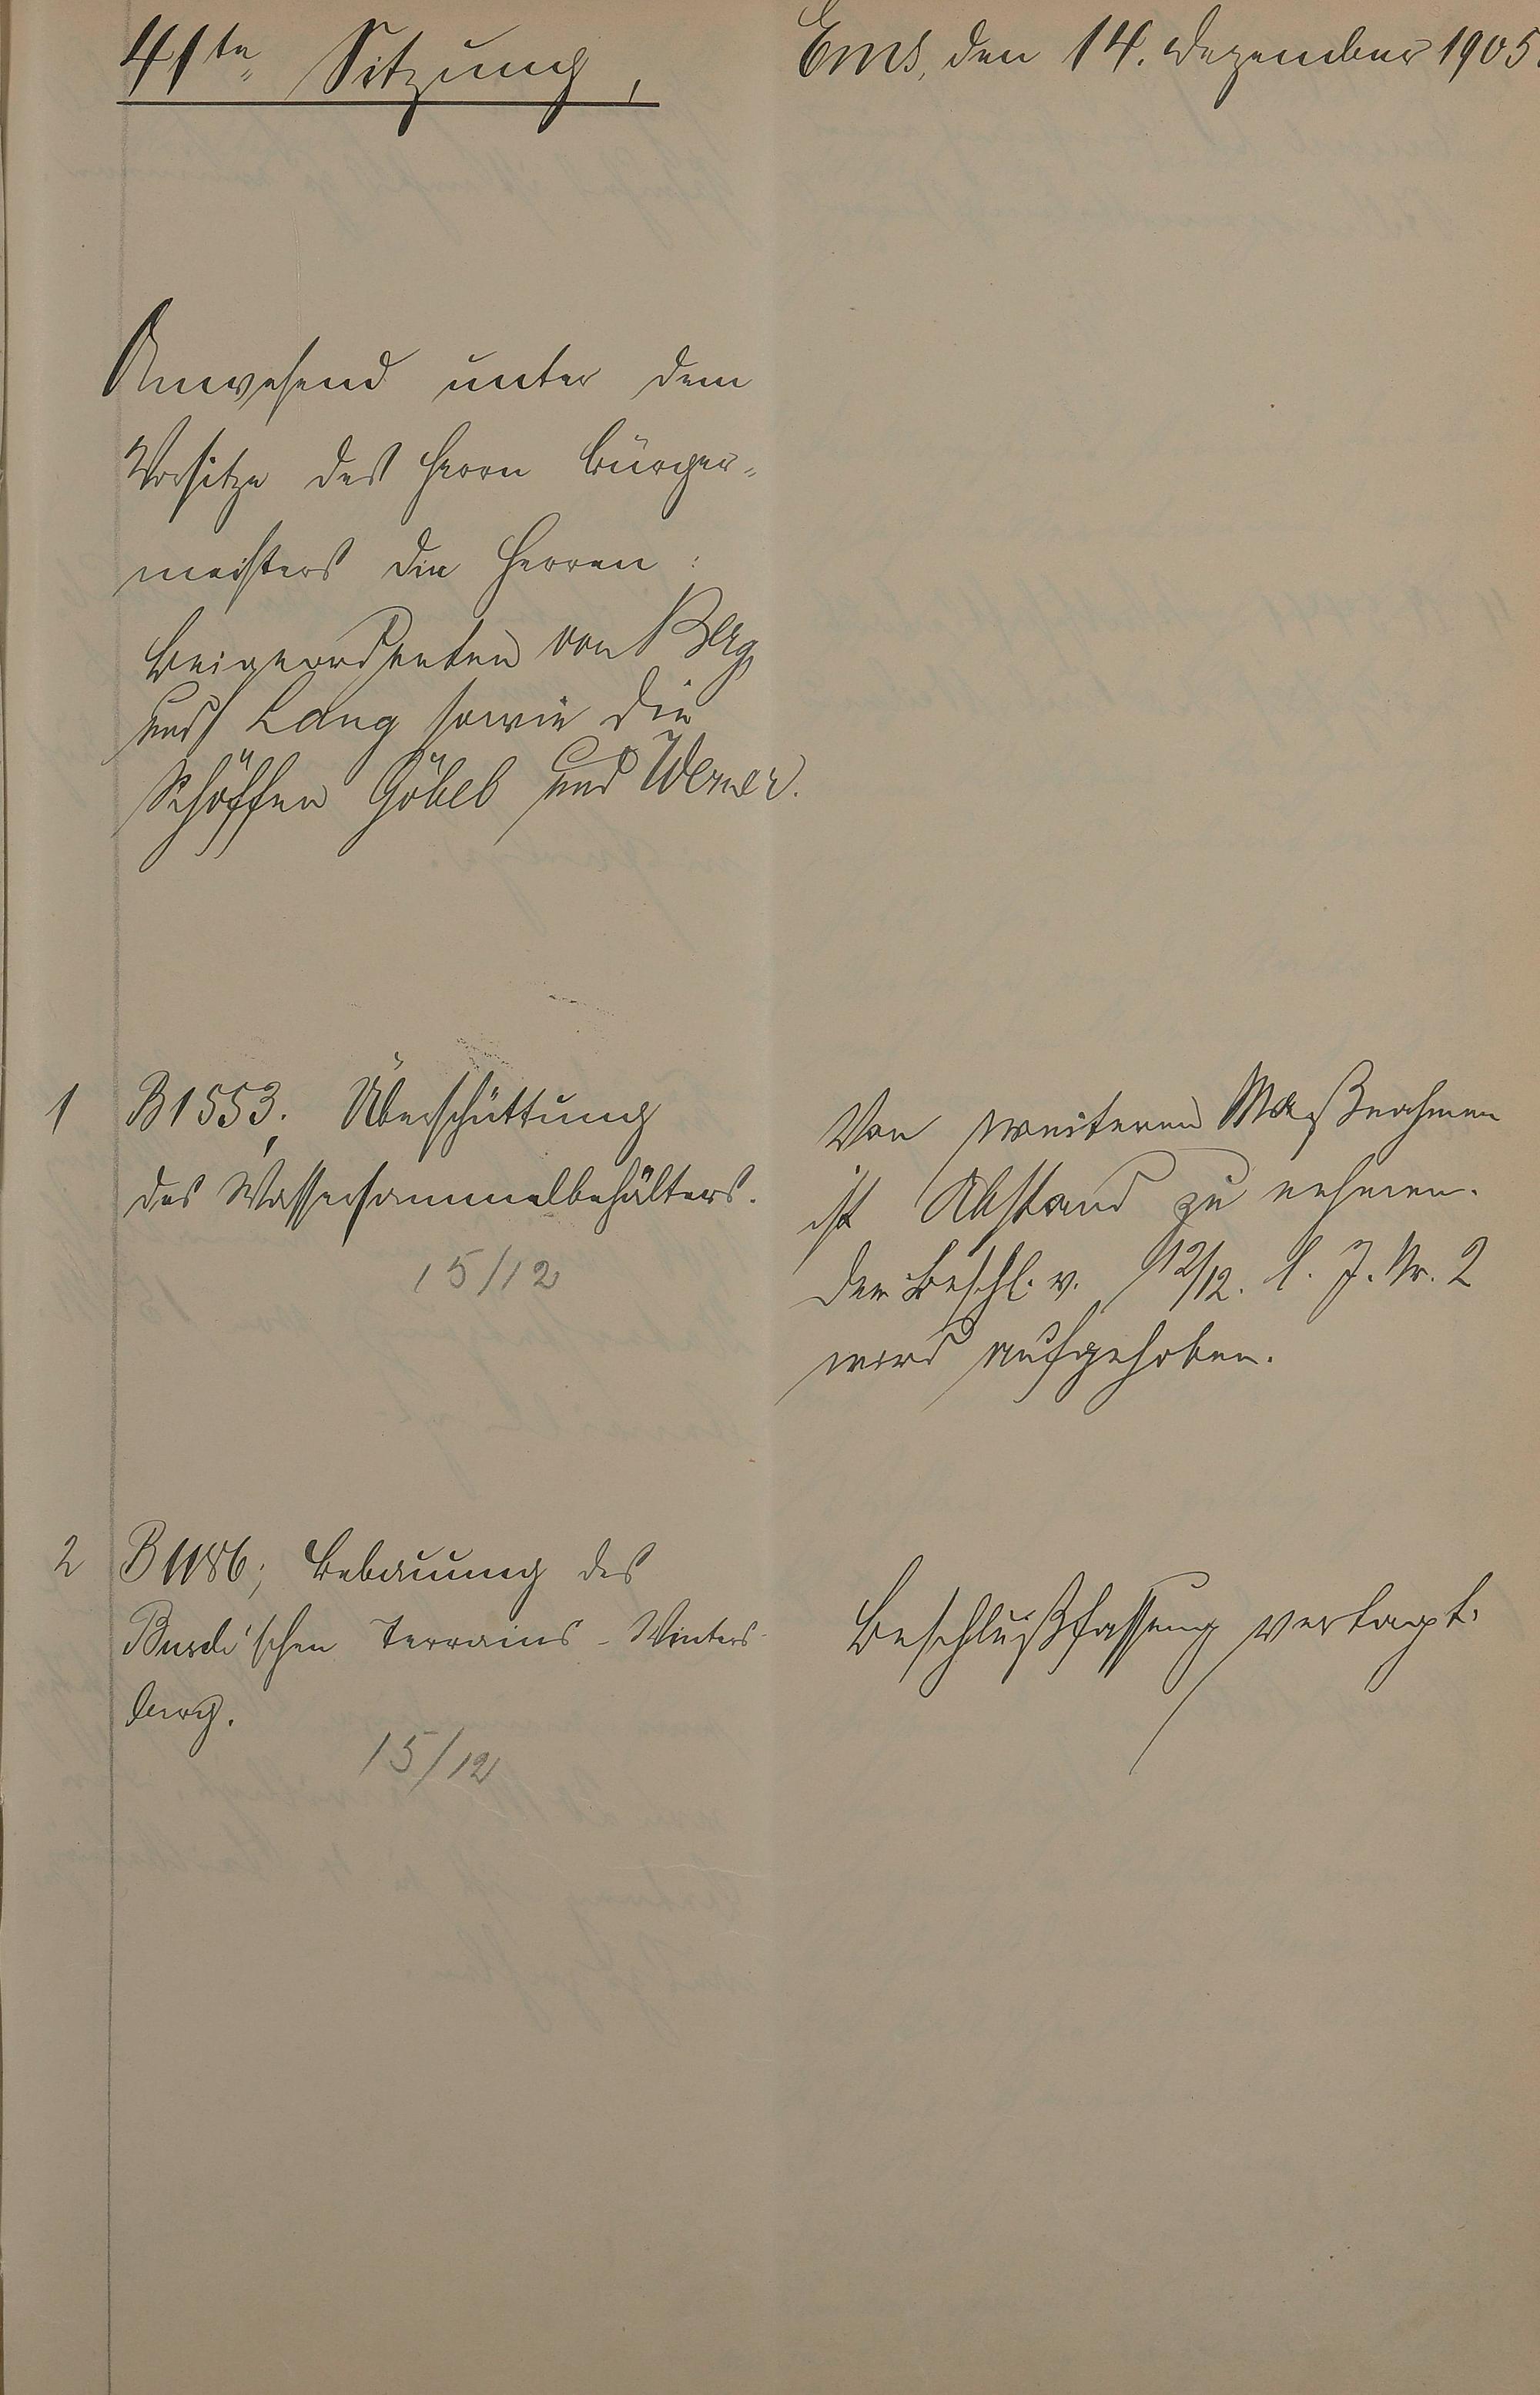 41te Sitzung,
Ems, den 14. Dezember 1905.
Anwesend unter dem
Vorsitze des Herrn Bürger-
meisters die Herren:
Beigeordneten von Berg
und Lang sowie die
Schöffen Göbel und Werner.
1 B 1553; Überschüttung
des Wassersammelbehälters.
15/12
Von weiteren Maßnahmen
ist Abstand zu nehmen.
Der Beschl. v. 12/12. l. J. Nr. 2
wird aufgehoben.
2 B 1186; Bebauung des
Terrains - Winters-
berg.
15/12
Beschlußfassung vertagt.